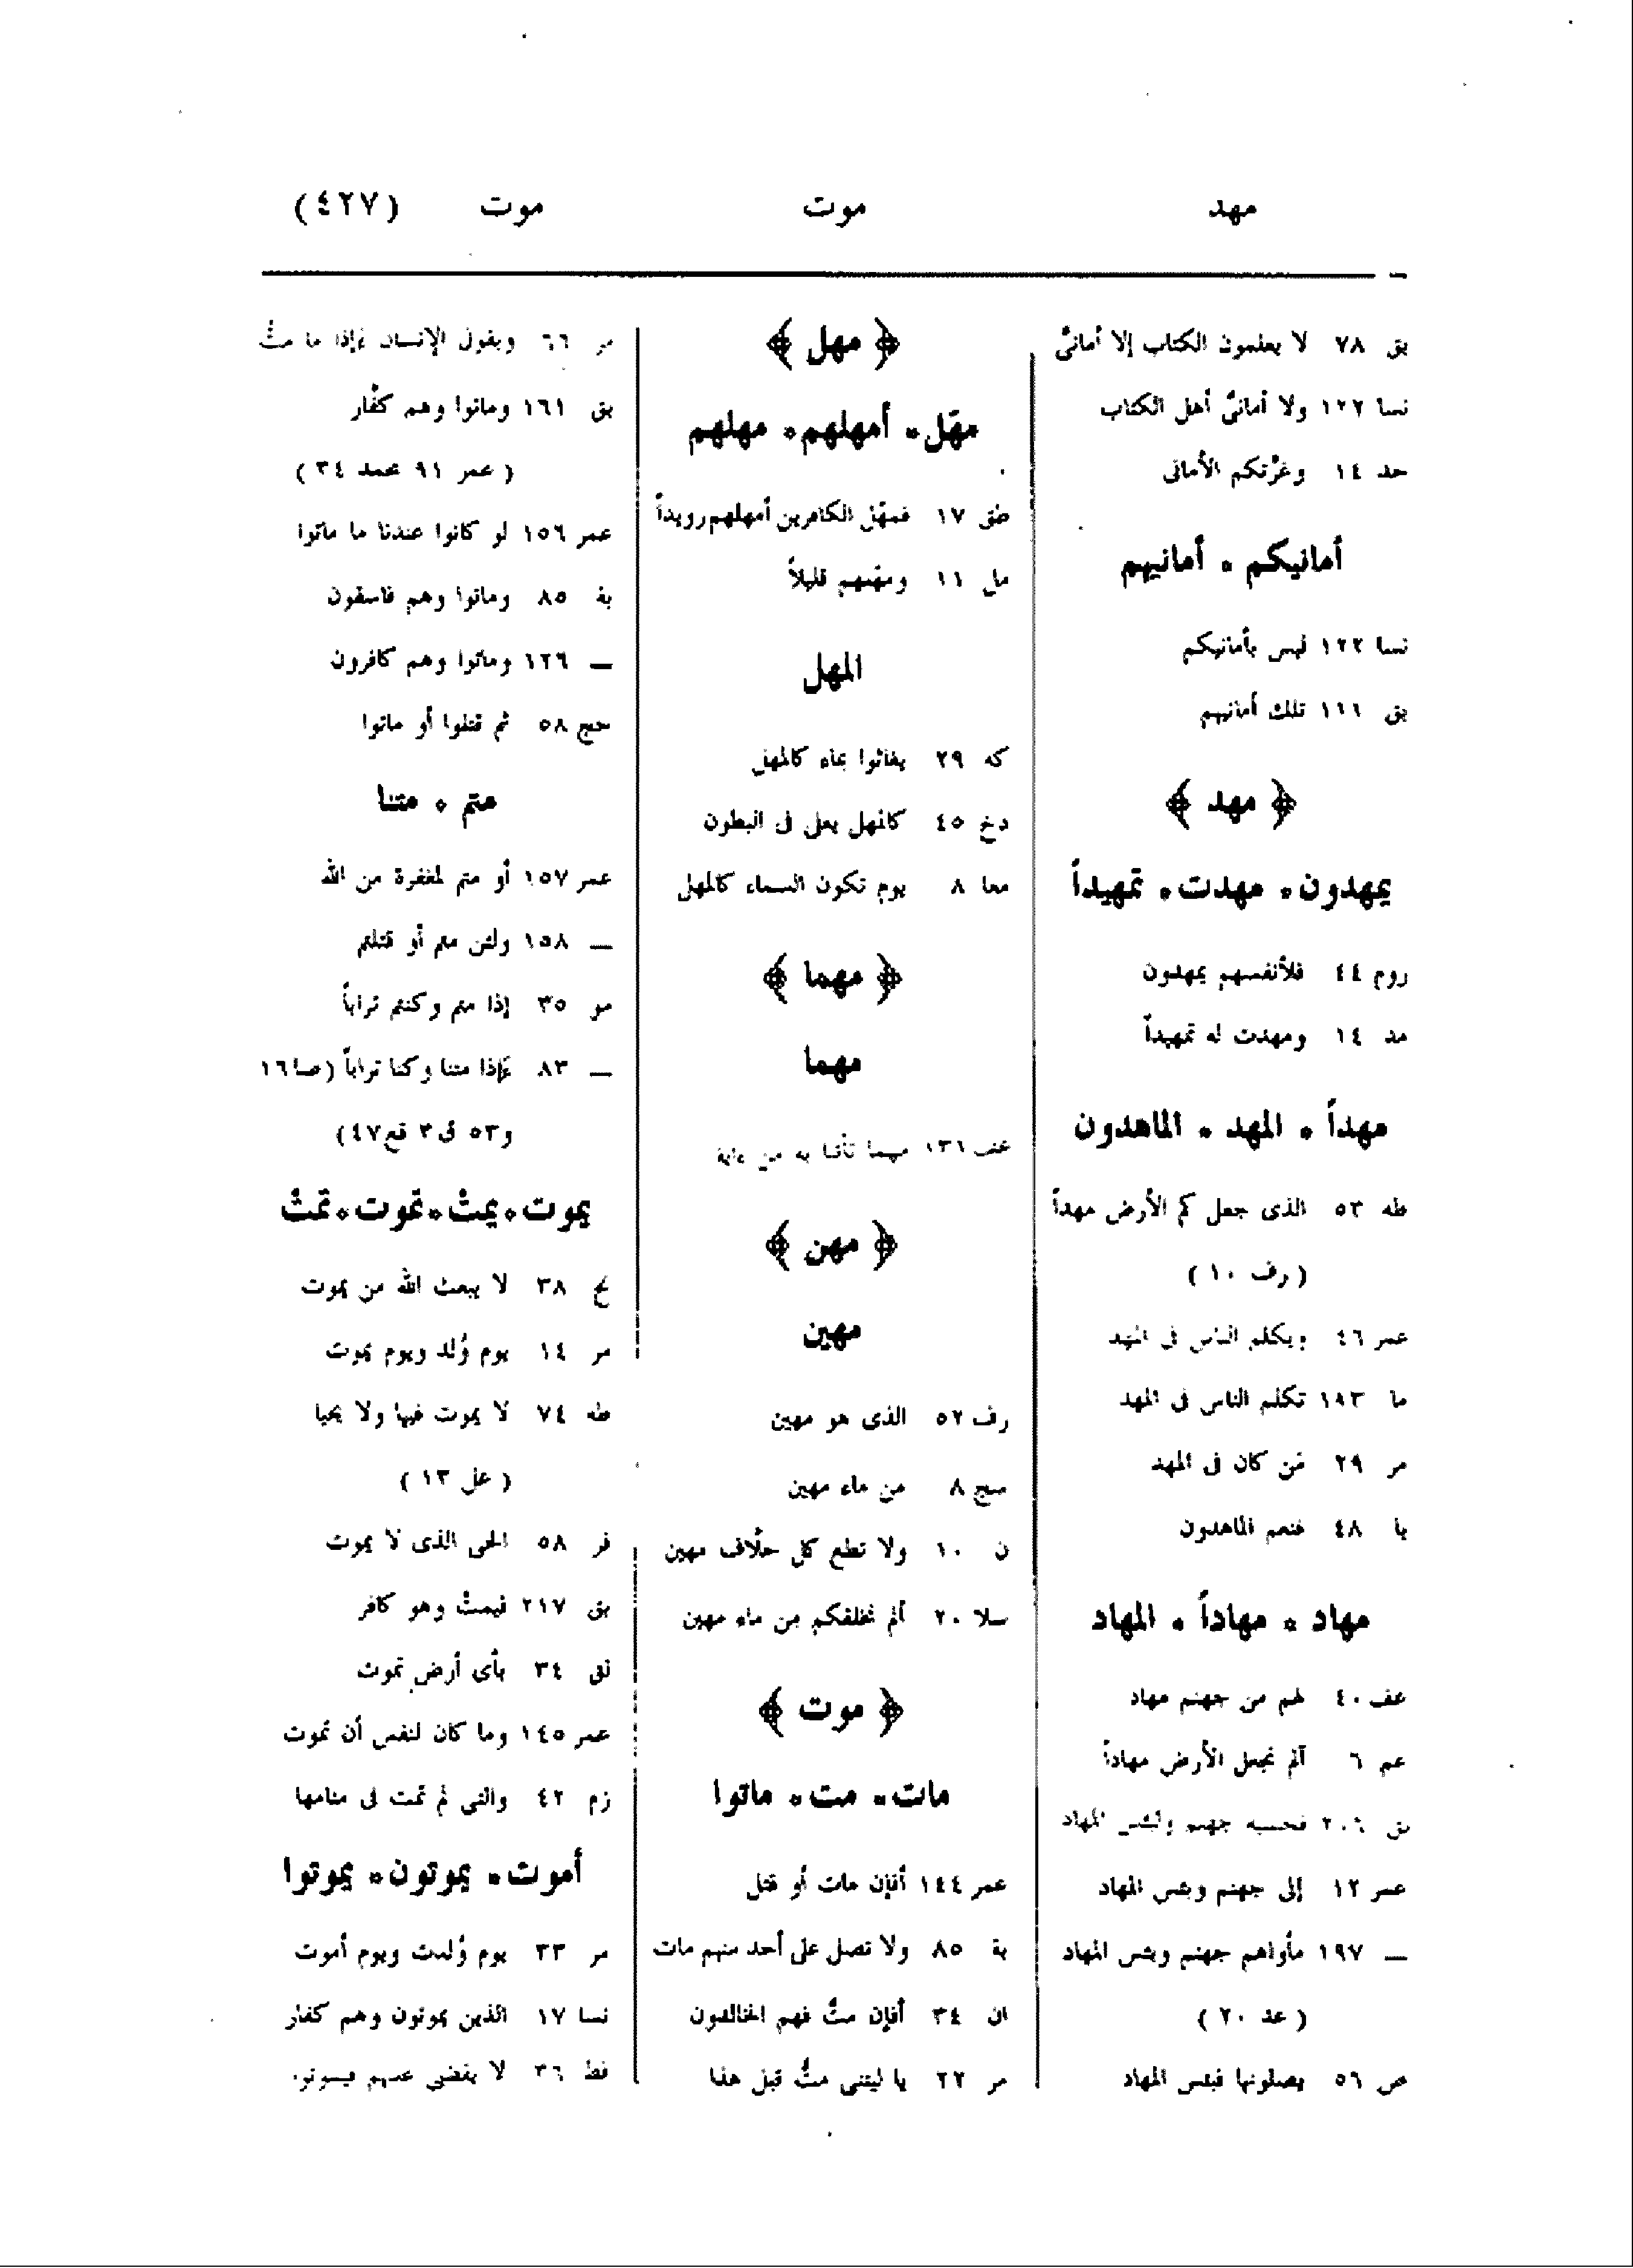 مهد موت موت (٤٢٧)
بق ٧٨ لا يعلمون الكتاب إلا أمانىَّ
نسا ١٢٢ ولا أمانىِّ أهل الكتاب
حد ١٤ وغرَّتكم الأمانى
أمانيكم ٠ أمانيهم
نسا ١٢٢ ليس بأمانيكم
بق ١١١ تلك أمانيهم
﴿ مهد ﴾
يمهدون ٠ مهدت ٠ تمهيداً
روم ٤٤ فلأنفسهم يمهدون
مد ١٤ ومهدت له تمهيداً
مهداً ٠ المهد ٠ الماهدون
طه ٥٣ الذى جعل لكم الأرض مهداً
( رف ١٠ )
عمر ٤٦ ويكلم الناس فى المهد
ما ١١٣ تكلم الناس فى المهد
مر ٢٩ مَن كان فى المهد
يا ٤٨ فنعم الماهدون
مهاد ٠ مهاداً ٠ المهاد
عف ٤٠ لهم من جهنم مهاد
عم ٦ ألم نجعل الأرض مهاداً
بق ٢٠٦ فحسبه جهنم ولبئس المهاد
عمر ١٢ إلى جهنم وبئس المهاد
— ١٩٧ مأواهم جهنم وبئس المهاد
( عد ٢٠ )
ص ٥٦ يصلونها فبئس المهاد
﴿ مهل ﴾
مهّل ٠ أمهلهم ٠ مهلهم
طق ١٧ فمهّل الكافرين أمهلهم رويداً
مل ١١ ومهّلهم قليلاً
المهل
كه ٢٩ يغاثوا بماء كالمهل
دخ ٤٥ كالمهل يغلى فى البطون
معا ٨ يوم تكون السماء كالمهل
﴿ مهما ﴾
مهما
عف ١٣٦ مهما تأتنا به من ءاية
﴿ مهن ﴾
مهين
رف ٥٢ الذى هو مهين
سج ٨ من ماء مهين
ن ١٠ ولا تطع كل حلّاف مهين
سلا ٢٠ ألم نخلقكم من ماء مهين
﴿ موت ﴾
مات ٠ مت ٠ ماتوا
عمر ١٤٤ أفإن مات أو قتل
بة ٨٥ ولا تصل على أحد منهم مات
ان ٣٤ أفإن متَّ فهم الخالدون
مر ٢٢ يا ليتنى متُّ قبل هذا
مر ٦٦ ويقول الإنسان أءذا ما متُّ
بق ١٦١ وماتوا وهم كفّار
( عمر ٩١ محمد ٣٤ )
عمر ١٥٦ لو كانوا عندنا ما ماتوا
بة ٨٥ وماتوا وهم فاسقون
— ١٢٦ وماتوا وهم كافرون
حج ٥٨ ثم قتلوا أو ماتوا
متم ٠ متنا
عمر ١٥٧ أو متم لمغفرة من الله
— ١٥٨ ولئن متم أو قتلتم
مو ٣٥ إذا متم وكنتم تراباً
— ٨٣ أءذا متنا وكنا تراباً (صا ١٦
و٥٣ ق ٣ قع ٤٧)
يموت ٠ يمتْ ٠ تموت ٠ تمتْ
نح ٣٨ لا يبعث الله من يموت
مر ١٤ يوم وُلد ويوم يموت
طه ٧٤ لا يموت فيها ولا يحيا
( عل ١٣ )
فر ٥٨ الحى الذى لا يموت
بق ٢١٧ فيمتْ وهو كافر
لق ٣٤ بأى أرض تموت
عمر ١٤٥ وما كان لنفس أن تموت
زم ٤٢ والتى لم تمت فى منامها
أموت ٠ يموتون ٠ يموتوا
مر ٣٣ يوم وُلدت ويوم أموت
نسا ١٧ الذين يموتون وهم كفار
فط ٣٦ لا يقضى عليهم فيموتوا